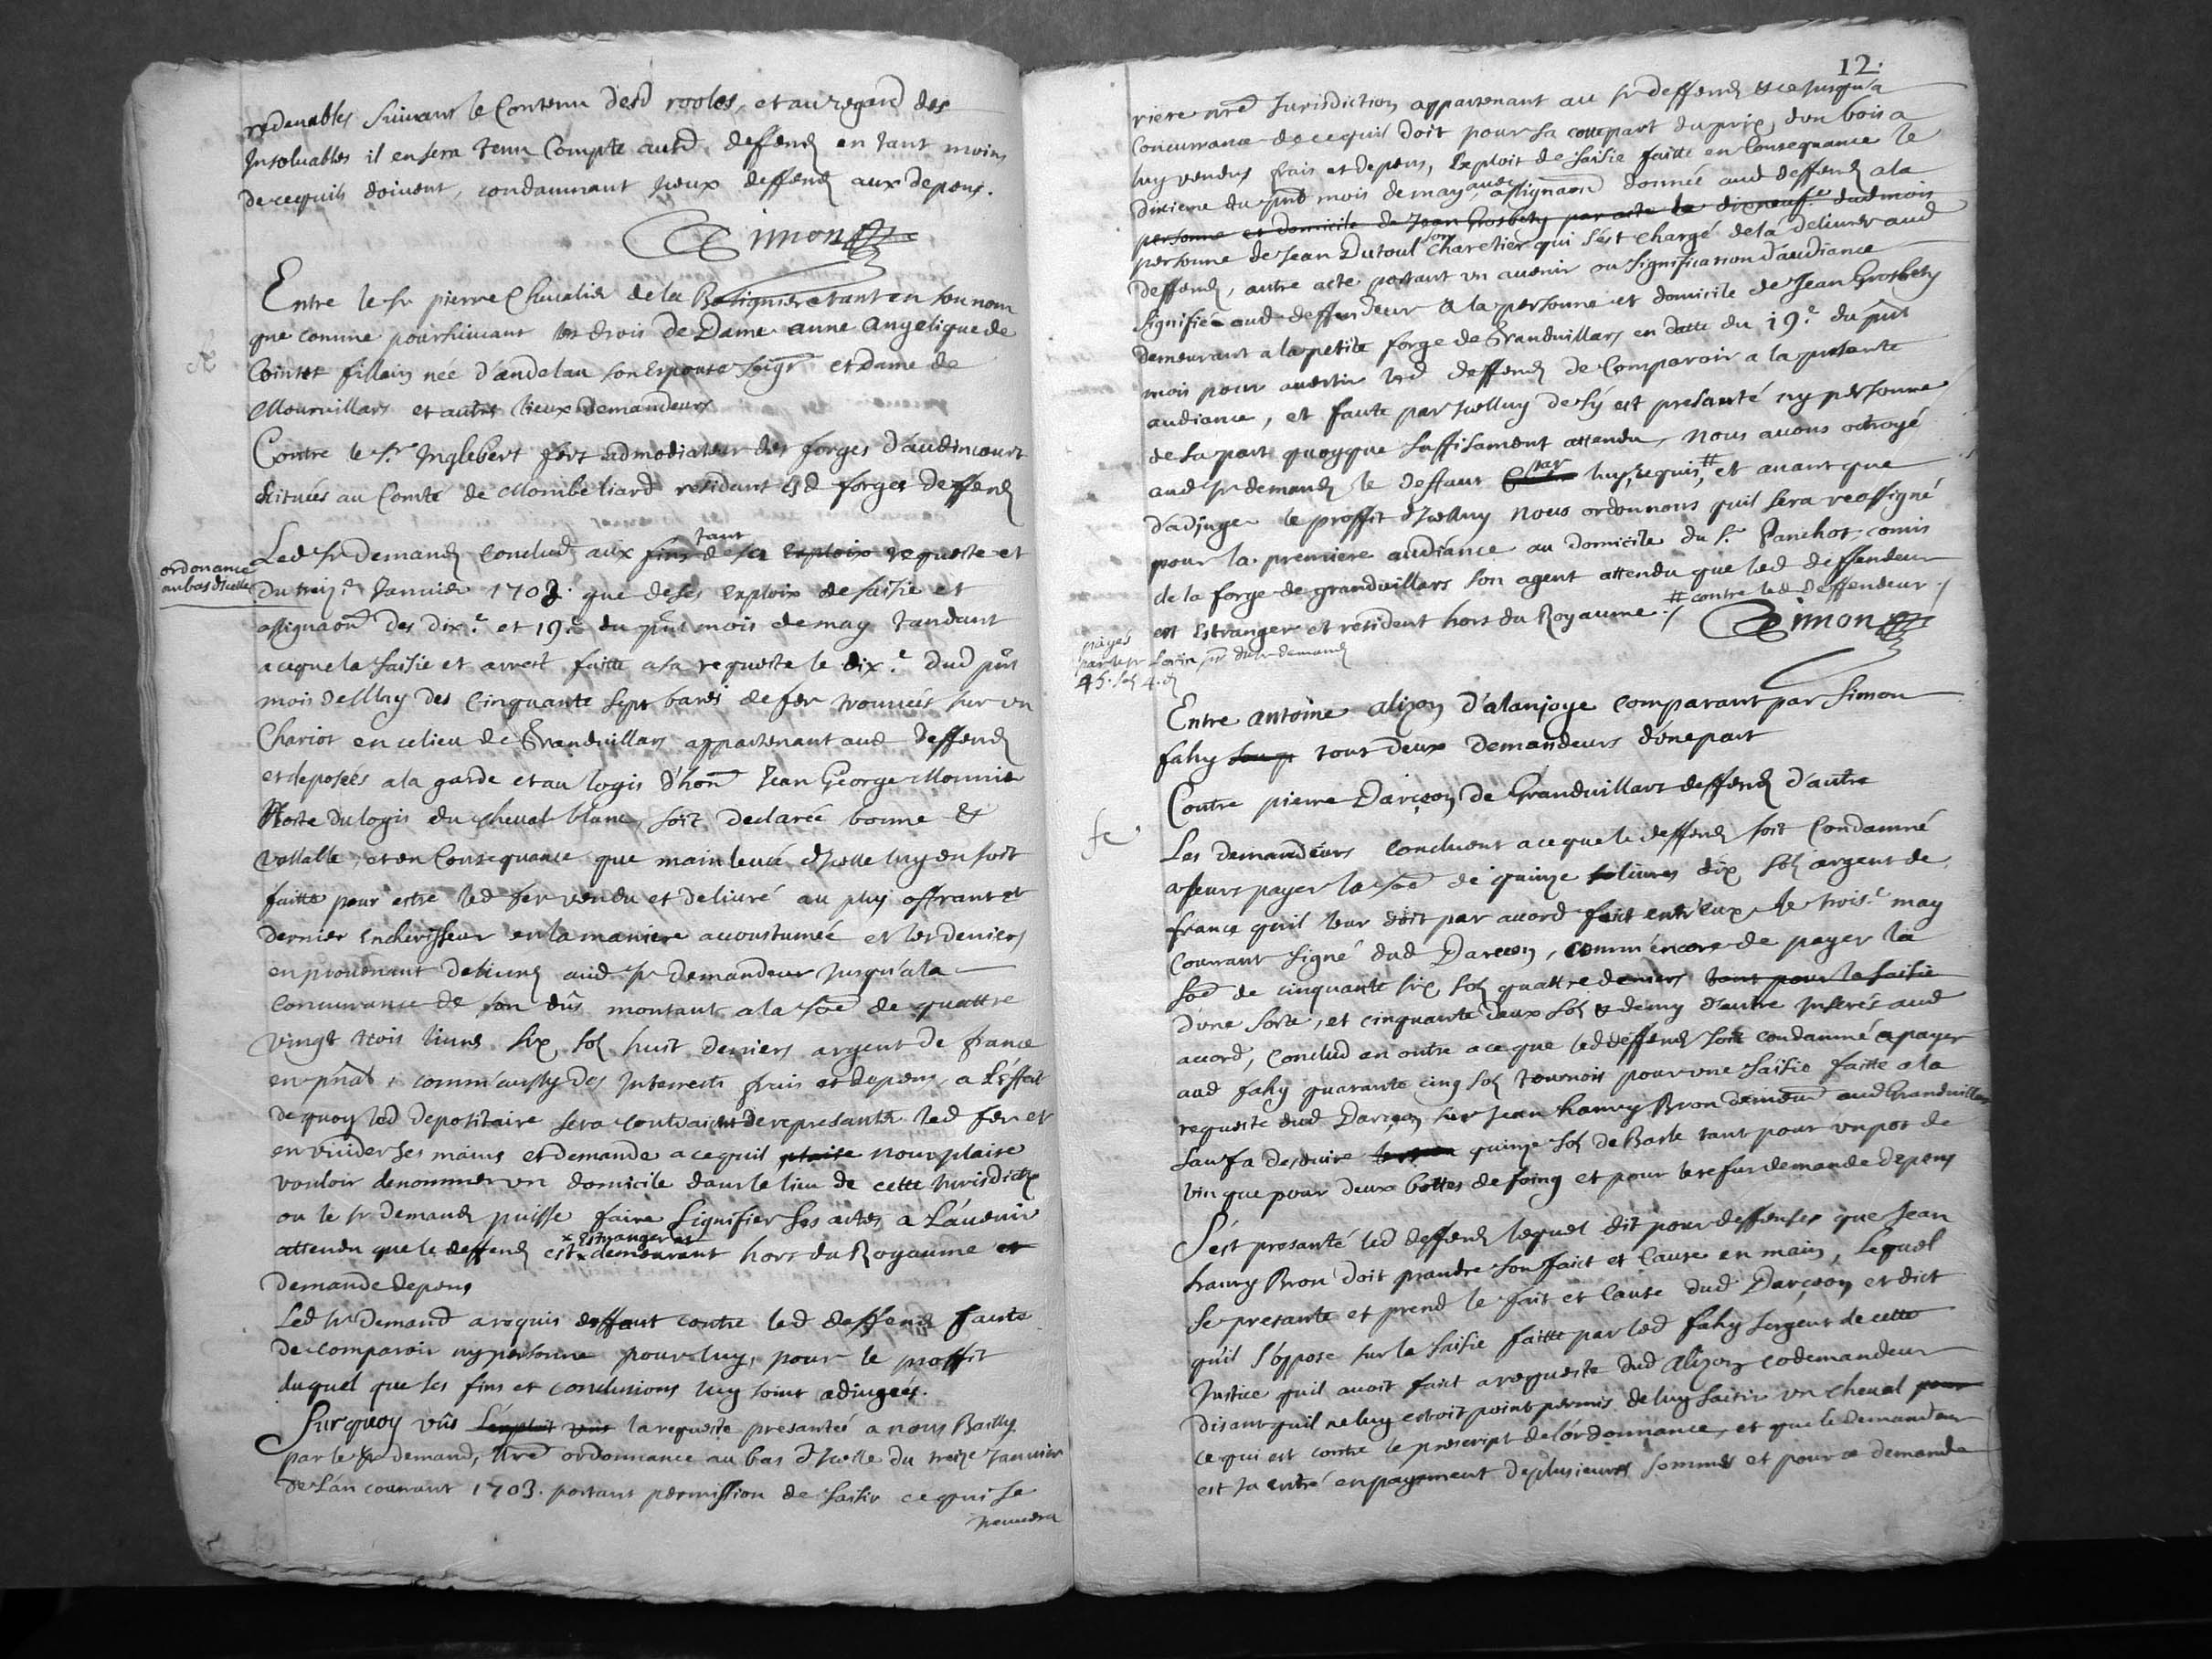 redeuables suiuant le Contenu desd rooles, et au regard des
Insoluables il en sera tenu Compte ausd. deffend en tant moins
de ce quils doiuent, condamnant Iceux deffend aux depens.
Simon
Entre le Sr pierre Cheualier de la Basiniere tant en son nom
que comme poursuiuant les drois de Dame anne angelique de
Cointet fillain née d'andelau son Espouse seigr et Dame de
Mouruillars et autres lieux demandeurs
Contre le Sr Inglebert fert admodiateur des forges d'audincourt
scituées au Comté de Mombeliard residant esd forges deffend
Led Sr demand conclud aux fins tant de sa Exploix requeste et
ordonance
au bas d'icelle
du treize Januier 1703. que de ses Exploix de saisie et
assignaôn des dix.e et 19.e du pnt mois de may tandant
a ceque la saisie et arrest faitte a sa requeste le dix.e dud pnt
mois de May des Cinquante sept bares de fer trouuées sur un
Chariot en ce lieu de Granduillars appartenant aud deffend
et deposées a la garde et au logis d'hon Jean George Monnie
Hoste du logis du cheual blanc, soit declarée bonne et
vallable, et en Consequance que main leuée d'Icelle luy en soit
faitte pour estre led fer vendu et deliuré au plus offrant et
dernier encherisseur en la maniere accoustumée et les deniers
en prouenant deliurés aud Sr demandeur Jusqu'a la
concurrance de son dûs montant a la soê de quattre
vingt trois liures six sols huit deniers argent de france
en pnâl, comm'aussy des Interrests frais et depens, a L'effet
de quoy led depositaire sera contraint de representer led fer et
en vuider ses mains et demande a cequil plaise nous plaise
vouloir denommer un domicile dans le lieu de cette Jurisdiction
ou le Sr demand puisse faire signifier ses actes a L'auenir
attendu que le deffend est x Estranger et demeurant hors du Royaume et
demande depens
Led Sr Demand a requis deffaut contre led deffend faute
de comparoir ny personne pour luy, pour le proffit
duquel que ses fins et conclusions luy soint adiugées.
Surquoy vûs L'exploit vûs la requeste presantée a nous Bailly
par le Sr demand, nre ordonnance au bas d'Icelle du treize Januier
de L'an courant 1703. portant permission de saisir ce qui se
trouuera
12.
riere nre Jurisdiction appartenant au Sr deffend et ce Jusqu'a
Concurrance de ce quil doit pour sa cotte part du prix, d'un bois a
luy vendus frais et depens, Exploit de saisie faitte en Consequance le
dixieme du pnt mois de may auec assignaôn donnée aud deffend a la
personne et domicile de Jean Grosbety par acte le dixneuf.e dud mois
personne de Jean Dutoul son Charetier qui s'est chargé de la deliurer aud
deffend, autre acte portant un auenir ou signification d'audiance
signifiée aud deffendeur a la personne et domicile de Jean Grosbety
demeurant a la petite forge de Granduillars en datte du 19.e du pnt
mois pour auertir led deffend de Comparoir a la presente
audiance, et faute par Icelluy de s'y est presanté ny personne
de sa part quoyque suffisament attendu, nous auons octroyé
aud Sr demand le deffaut par luy requis #, et auant que
d'adjuger le proffit d'Icelluy nous ordonnons quil sera reassigné
pour la premiere audiance au domicile du Sr Panchot comis
de la forge de granduillars son agent attendu que led deffendeur
est Estranger et resident hors du Royaume ./ # contre led deffendeur ./
Simon
payés
par le Sr Lorin pr du Sr demand
45. sol 4. d
Entre antoine alizon d'alanjoye comparant par Simon
fahy tout deux demandeurs d'une part
Contre pierre Darçcon de Granduillars deffend d'autre
Les demandeurs concluent a ceque le deffend soit Condamné
a leurs payer la soê de quinze liures dix sols argent de
france quil leur doit par acord fait entr'eux le trois.e may
courrant signé dud Darccon, comm'encore de payer la
soê de cinquante six sols quattre deniers tant pour la saisie
d'une sorte, et cinquante deux sols et demy d'autre Inserés aud
accord, conclud en outre a ce que led deffend soit condamné a payer
aud fahy quarante cinq sols tournois pour une saisie faitte a la
requeste dud Darçcon sur Jean hanry Bron demeurt aud Granduillars
sauf a desduire quinze sols de Basle tant pour un pot de
vin que pour deux bottes de foing et pour le refus demande depens
S'est presanté led deffend lequel dit pour deffenses que Jean
hanry Bron doit prandre son faict et cause en main, Lequel
se presante et prend le fait et cause dud Darçcon et dict
qu'il s'oppose sur la saisie faitte par led fahy sergent de cette
Justice quil auoit faict a requeste dud Alizon codemandeur
disant quil ne luy estoit point permis de luy saisir un cheual pour
ce qui est contre le prescript de l'ordonnance, et que le demandeur
est ja entré en payement de plusieurs sommes et pour ce demande